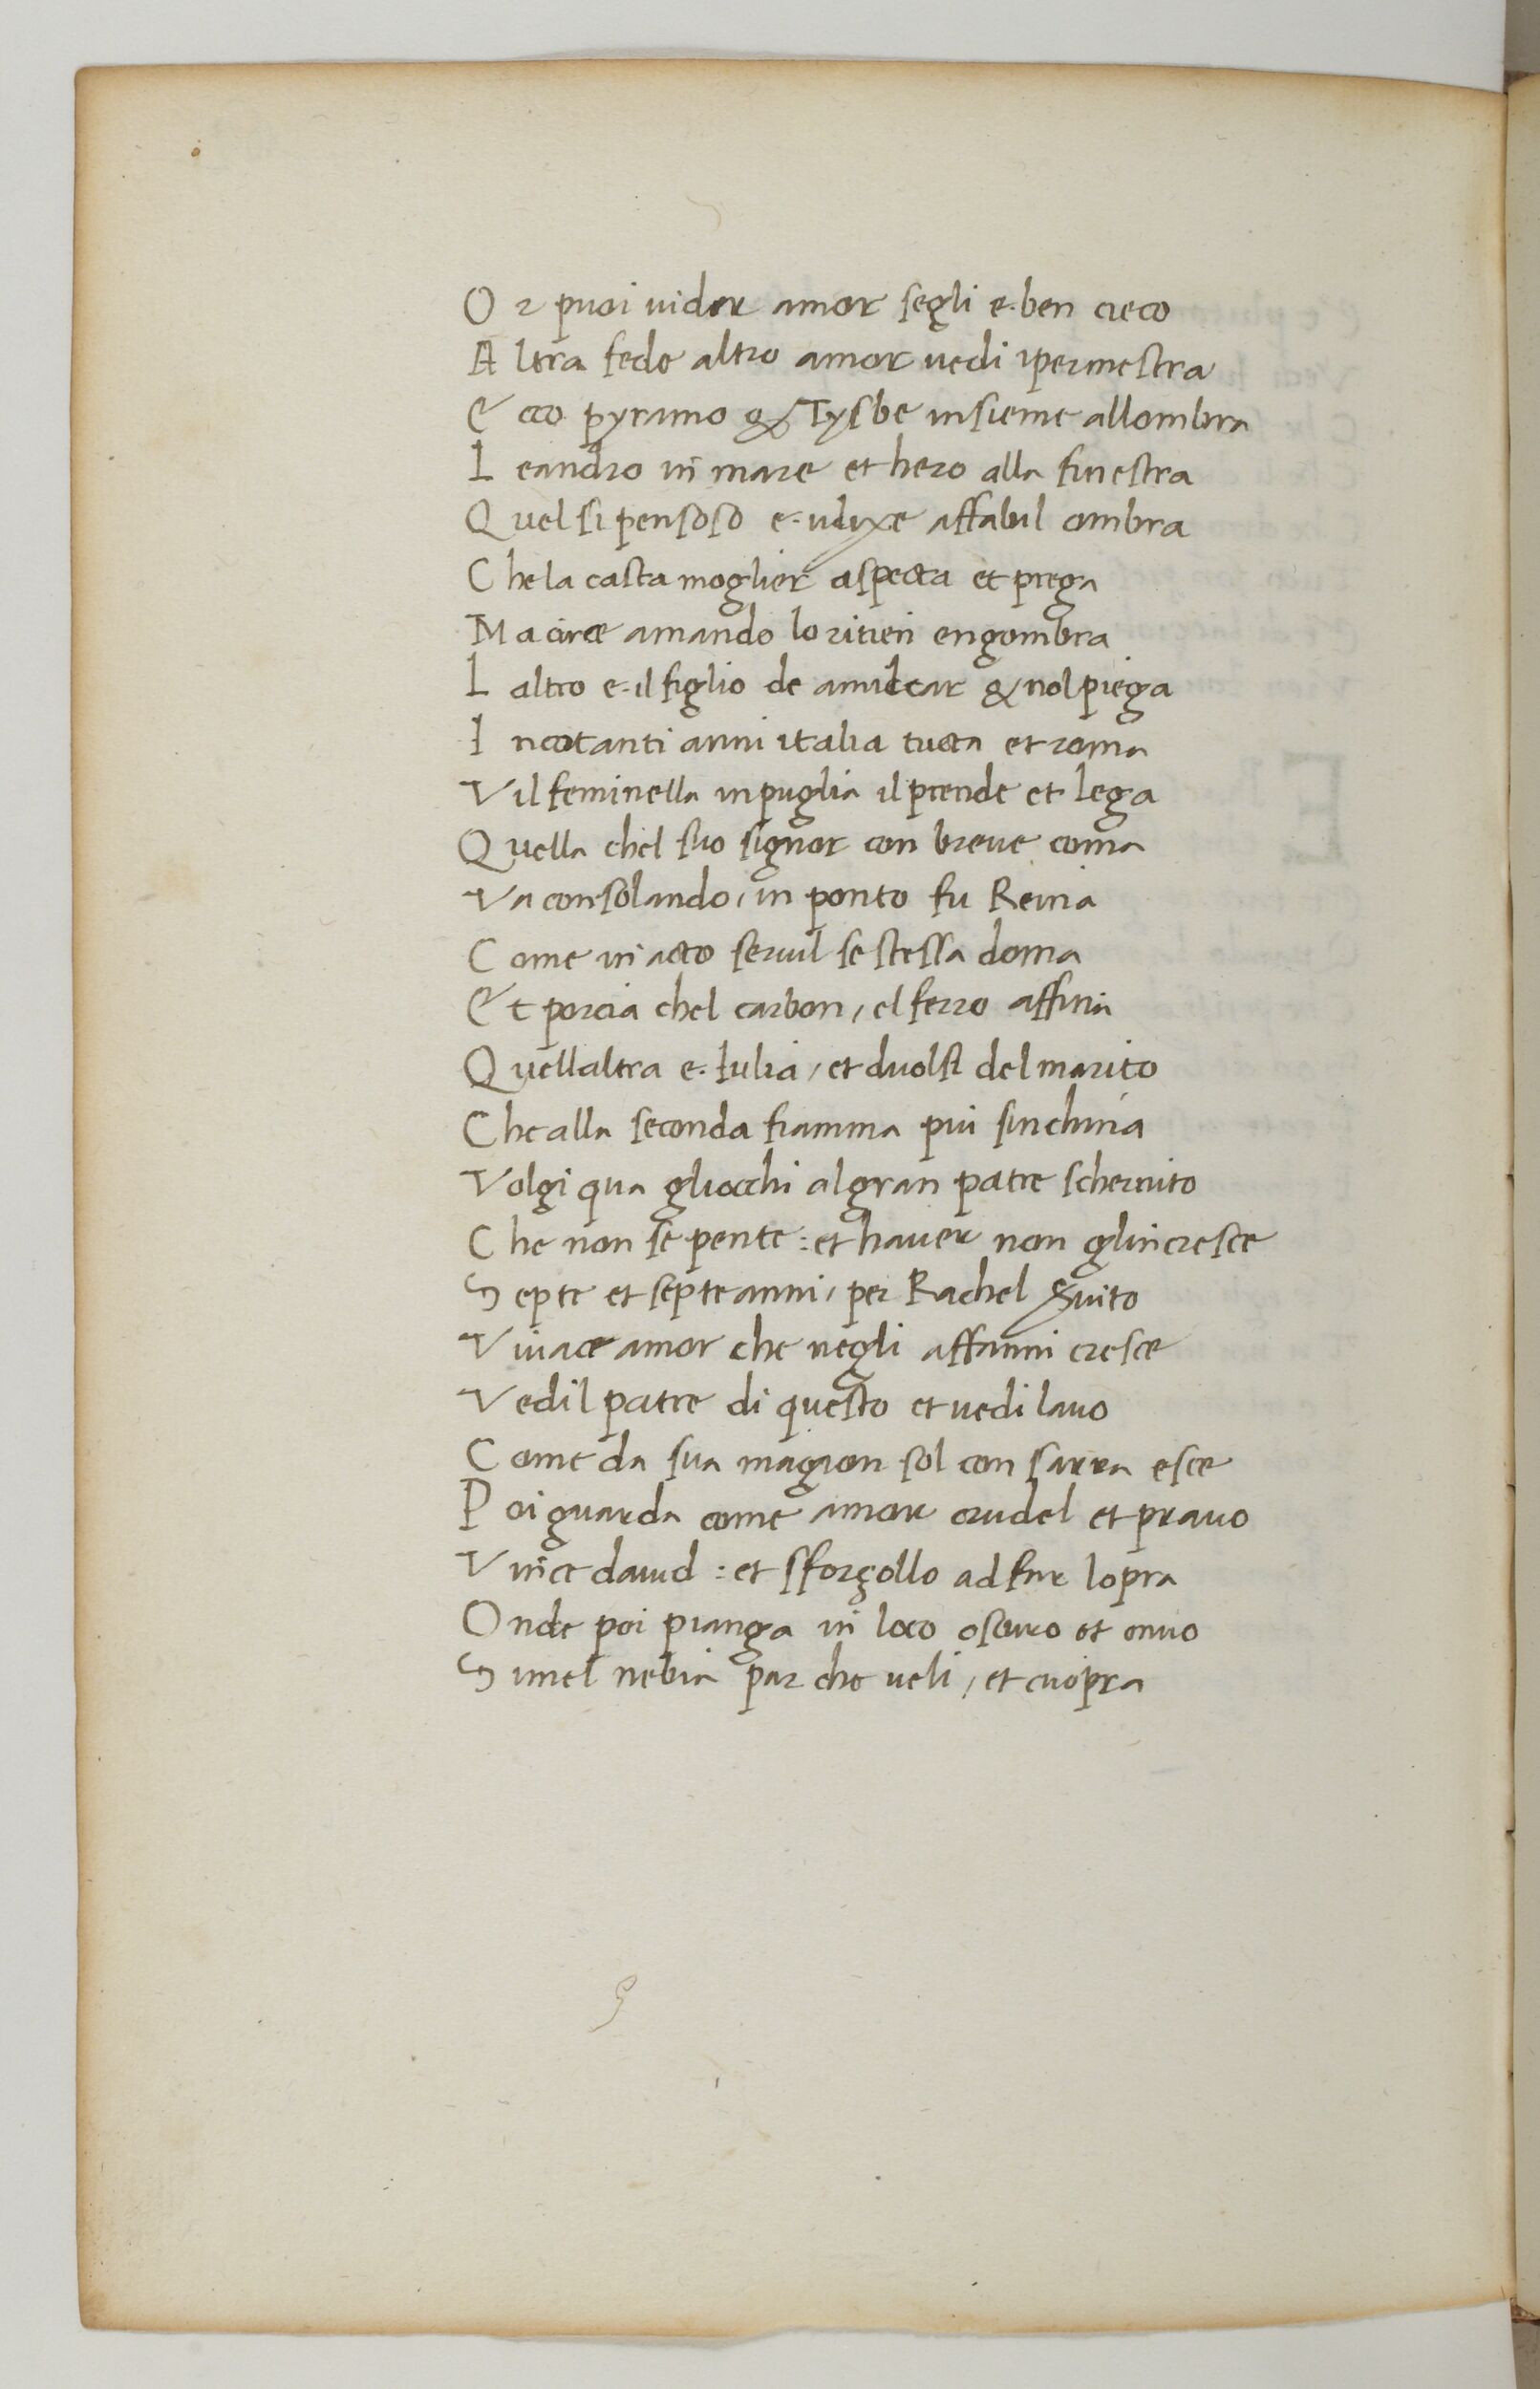 Or puoi vider amor segli e. ben cieco
Altra fede altro amor vedi ipermestra
Ecco pyramo & Tysbe insieme allombra
Leandro in mare et hero alla finestra
Quel si pensoso e. ulixe affabil ombra
Che la casta moglier aspecta et prega
Ma circe amando lo ritien engombra
Laltro e. il figlio de amilcar & nol piega
In cotanti anni italia tucta et roma
Vil feminella in puglia il prende et lega
Quella chel suo signor con breve coma
Va consolando, in ponto fu Reina
Come in acto servil se stessa doma
Et porcia chel carbon, el ferro affina
Quellaltra e. Iulia, et duolsi del marito
Che alla seconda fiamma piu sinchina
Volgi qua gliocchi al gran patre schernito
Che non se pente : et haver non glincresce
Septe et septe anni, per Rachel servito
Vivace amor che negli affanni cresce
Vedil patre di questo et vedi lavo
Come da sua magion sol con sarra esce
Poi guarda come amor crudel et pravo
Vince david : et sforçollo ad far lopra
Onde poi pianga in loco oscuro et cavo
Simel nebia par che veli, et cuopra